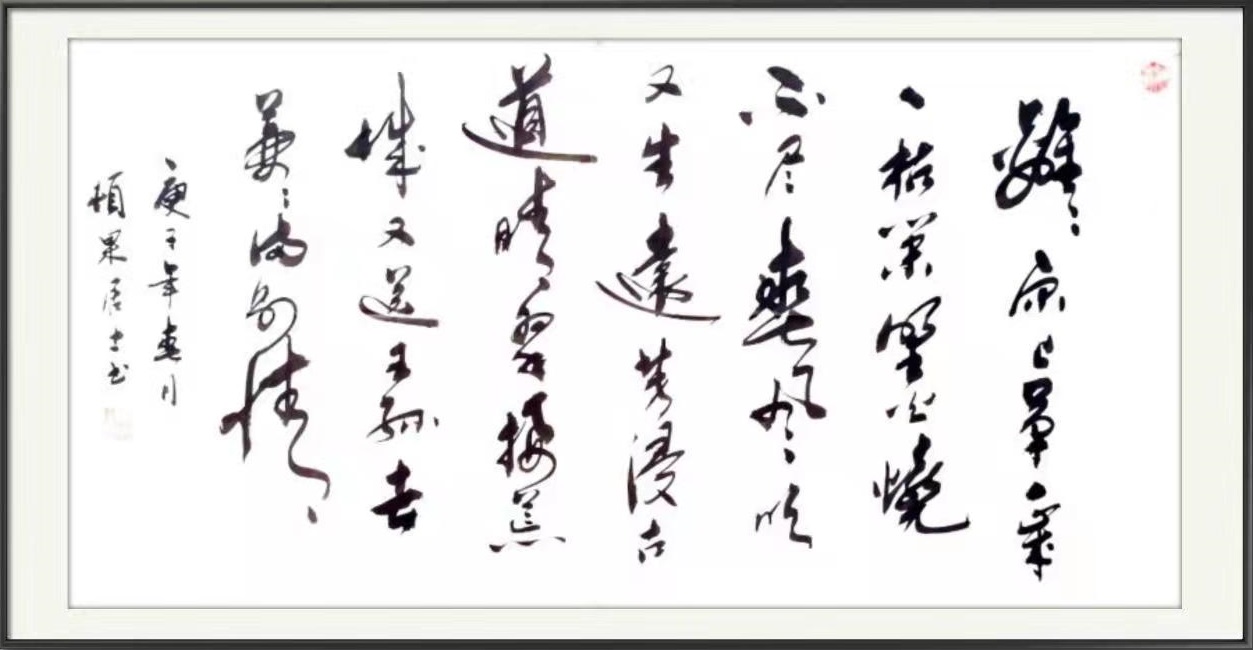 離〻原上草一歲
一枯榮野火燒
不尽春风吹
又生遠芳侵古
道晴翠接荒
城又送王孫去
萋〻滿別情
庚子年春月
果居士书